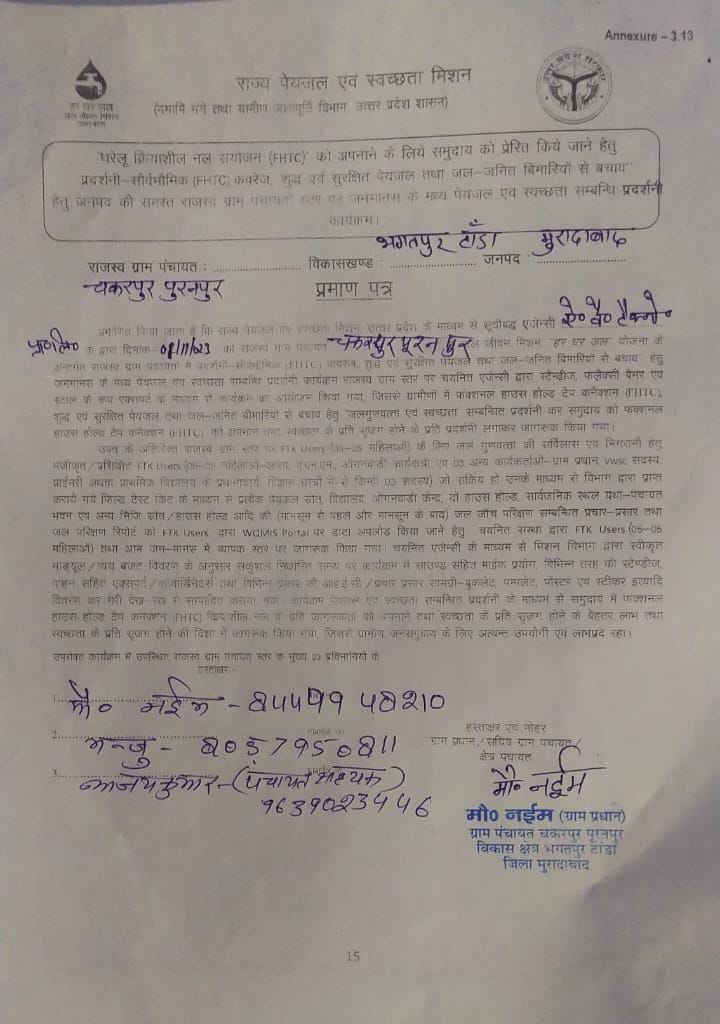 Annexure – 3.13
राज्य पेयजल एवं स्वच्छता मिशन
(नमामि गंगे तथा ग्रामीण जलापूर्ति विभाग उत्तर प्रदेश शासन)
हर घर जल
जल जीवन मिशन
उत्तर प्रदेश सरकार
'घरेलू क्रियाशील नल संयोजन (FHTC)' को अपनाने के लिये समुदाय को प्रेरित किये जाने हेतु
प्रदर्शनी–सार्वभौमिक (FHTC) कवरेज, शुद्ध एवं सुरक्षित पेयजल तथा जल–जनित बिमारियों से बचाव"
हेतु जनपद की समस्त राजस्व ग्राम पंचायतों स्तर पर जनमानस के मध्य पेयजल एवं स्वच्छता सम्बन्धि प्रदर्शनी
कार्यक्रम।
भगतपुर टाँडा मुरादाबाद
राजस्व ग्राम पंचायत : विकासखण्ड : जनपद :
चकरपुर पुरनपुर
प्रमाण पत्र
प्रमाणित किया जाता है कि राज्य पेयजल एवं स्वच्छता मिशन, उत्तर प्रदेश के माध्यम से सूचीबद्ध एजेन्सी
प्रा०लि० के द्वारा दिनांक को राजस्व ग्राम पंचायत चकरपुर पूरनपुर जल जीवन मिशन "हर घर जल" योजना के
अन्तर्गत राजस्व ग्राम पंचायतों में प्रदर्शनी–सार्वभौमिक (FHTC) कवरेज, शुद्ध एवं सुरक्षित पेयजल तथा जल–जनित बिमारियों से बचाव" हेतु
जनमानस के मध्य पेयजल एवं स्वच्छता सम्बन्धि प्रदर्शनी कार्यक्रम राजस्व ग्राम स्तर पर चयनित एजेन्सी द्वारा स्टैन्डीज, फ्लैक्सी बैनर एवं
स्टाल के रूप एक्सपर्ट के माध्यम से कार्यक्रम का आयोजन किया गया, जिससे ग्रामीणों में फंक्शनल हाउस होल्ड टेप कनेक्शन (FHTC),
शुद्ध एवं सुरक्षित पेयजल तथा जल–जनित बीमारियों से बचाव हेतु "जलगुणवत्ता एवं स्वच्छता सम्बन्धित प्रदर्शनी कर समुदाय को फंक्शनल
हाउस होल्ड टेप कनेक्शन (FHTC) को अपनाने तथा स्वच्छता के प्रति सृजग होने के प्रति प्रदर्शनी लगाकर जागरूक किया गया।
उक्त के अतिरिक्त राजस्व ग्राम स्तर पर FTK Users (05–05 महिलाओं) के लिए जल गुणवत्ता की सर्विलांस एवं निगरानी हेतु
पंजीकृत/प्रशिक्षित FTK Users (05–05 महिलाओं–आशा, ए.एन.एम, आंगनवाड़ी कार्यकत्री एवं 03 अन्य कार्यकर्ताओं–ग्राम प्रधान, vwsc सदस्य,
प्राईमरी अथवा प्राथमिक विद्यालय के प्रधानाचार्य, विज्ञान छात्रों में से किन्हीं 03 सदस्य) जो सक्रिय हो उनके माध्यम से विभाग द्वारा प्राप्त
कराये गये फिल्ड टेस्ट किट के माध्यम से प्रत्येक पेयजल स्रोत, विद्यालय, आंगनवाड़ी केन्द्र, दो हाउस होल्ड, सार्वजनिक स्थल यथा–पंचायत
भवन एवं अन्य निजि स्रोत/हाउस होल्ड आदि की (मानसून से पहले और मानसून के बाद) जल जाँच परिक्षण सम्बन्धित प्रचार–प्रसार तथा
जल परिक्षण रिपोर्ट को FTK Users द्वारा WQMIS Portal पर डाटा अपलोड किया जाने हेतु चयनित संस्था द्वारा FTK Users (05–05
महिलाओं) तथा आम जन–मानस में व्यापक स्तर पर जागरूक किया गया। चयनित एजेन्सी के माध्यम से मिशन विभाग द्वारा स्वीकृत
माड्यूल/व्यय बजट विवरण के अनुसार सकुशल निर्धारित समय पर कार्यक्रम में साउण्ड सहित माईक प्रयोग, विभिन्न तरह की स्टैण्डीज,
वाहन सहित एक्सपर्ट/कोआर्डिनेटर्स तथा विभिन्न प्रकार की आई.ई.सी./प्रचार प्रसार सामग्री–बुकलेट, पम्पलेट, पोस्टर एवं स्टीकर इत्यादि
वितरण कर मेरी देख–रेख में सम्पादित कराया गया। कार्यक्रम पेयजल एवं स्वच्छता सम्बन्धित प्रदर्शनी के माध्यम से समुदाय में फंक्शनल
हाउस होल्ड टेप कनेक्शन (FHTC) क्रियाशील नल के प्रति जागरूकता को अपनाने तथा स्वच्छता के प्रति सृजग होने के बेहतर लाभ तथा
स्वच्छता के प्रति सृजग होने की दिशा में जागरूक किया गया, जिससे ग्रामीण जनसमुदाय के लिए अत्यन्त उपयोगी एवं लाभप्रद रहा।
उपरोक्त कार्यक्रम में उपस्थित राजस्व ग्राम पंचायत स्तर के मुख्य 03 प्रतिभागियों के
हस्ताक्षर –
1. मौ० नईम - 8449948210
2. मन्जु - 8057950811
3. अजयकुमार - (पंचायत अध्यक्ष)
9639023446
हस्ताक्षर एवं मोहर
ग्राम प्रधान/सचिव ग्राम पंचायत/
क्षेत्र पंचायत
मौ० नईम
मौ० नईम (ग्राम प्रधान)
ग्राम पंचायत चकरपुर पूरनपुर
विकास क्षेत्र भगतपुर टांडा
जिला मुरादाबाद
15